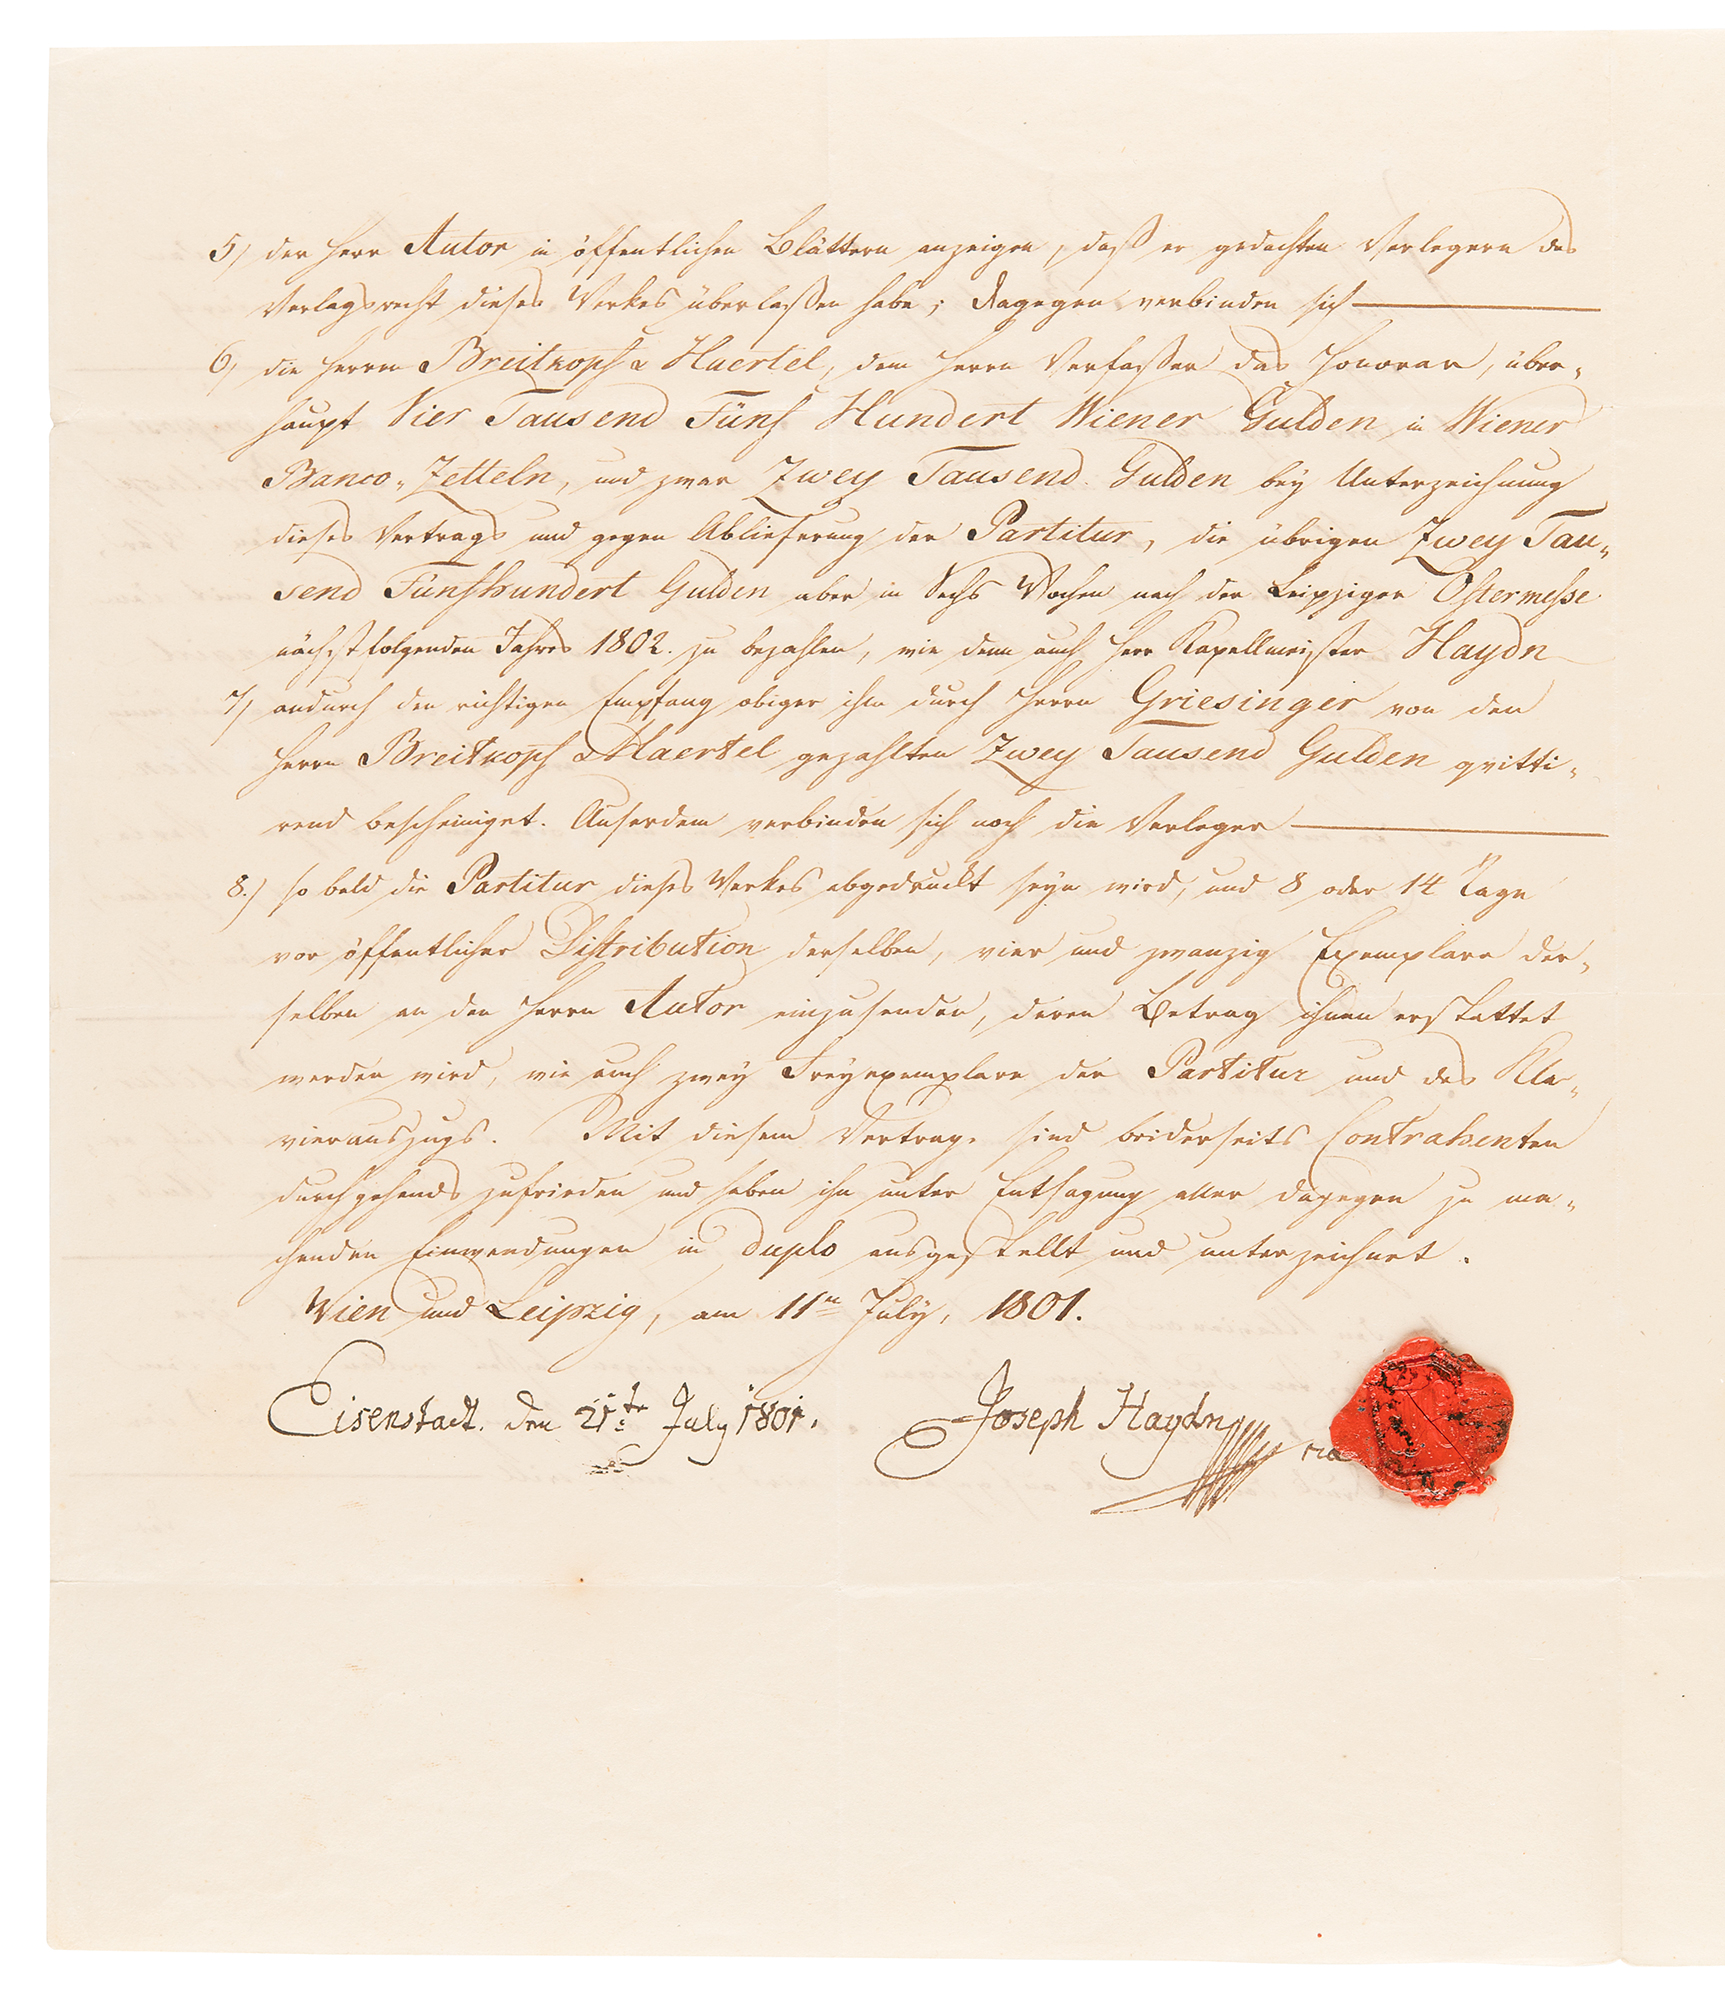 5) der Herr Autor in öffentlichen Blättern anzeigen, daß er gedachten Verlegern das
Verlagsrecht dieses Werkes überlaßen habe; dagegen verbinden sich
6) die Herren Breitkopf & Haertel, dem Herrn Verfaßer das Honorar, über-
haupt Vier Tausend Fünf Hundert Wiener Gulden in Wiener
Banco-Zetteln, und zwar Zwey Tausend Gulden bey Unterzeichnung
dieses Vertrags und gegen Ablieferung der Partitur, die übrigen Zwey Tau-
send Fünfhundert Gulden aber in Sechs Wochen nach der Leipziger Ostermesse
nächstfolgenden Jahres 1802. zu bezahlen, wie denn auch Herr Kapellmeister Haydn
7) andurch den richtigen Empfang obiger ihm durch Herrn Griesinger von den
Herrn Breitkopf & Haertel gezahlten Zwey Tausend Gulden qvitti-
rend bescheiniget. Auserdem verbinden sich noch die Verleger
8.) so bald die Partitur dieses Werkes abgedruckt seyn wird, und 8 oder 14 Tage
vor öffentlicher Distribution derselben, vier und zwanzig Exemplare der-
selben an den Herrn Autor einzusenden, deren Betrag ihnen erstattet
werden wird, wie auch zwey Freyexemplare der Partitur und des Kla-
vierauszugs. Mit diesem Vertrage sind beiderseits Contrahenten
durchgehends zufrieden und haben ihn unter Entsagung aller dagegen zu ma-
chenden Einwendungen in duplo ausgestellt und unterzeichnet.
Wien und Leipzig, am 11n July, 1801.
Eisenstadt. den 21te July 1801.
Joseph Haydn mpria